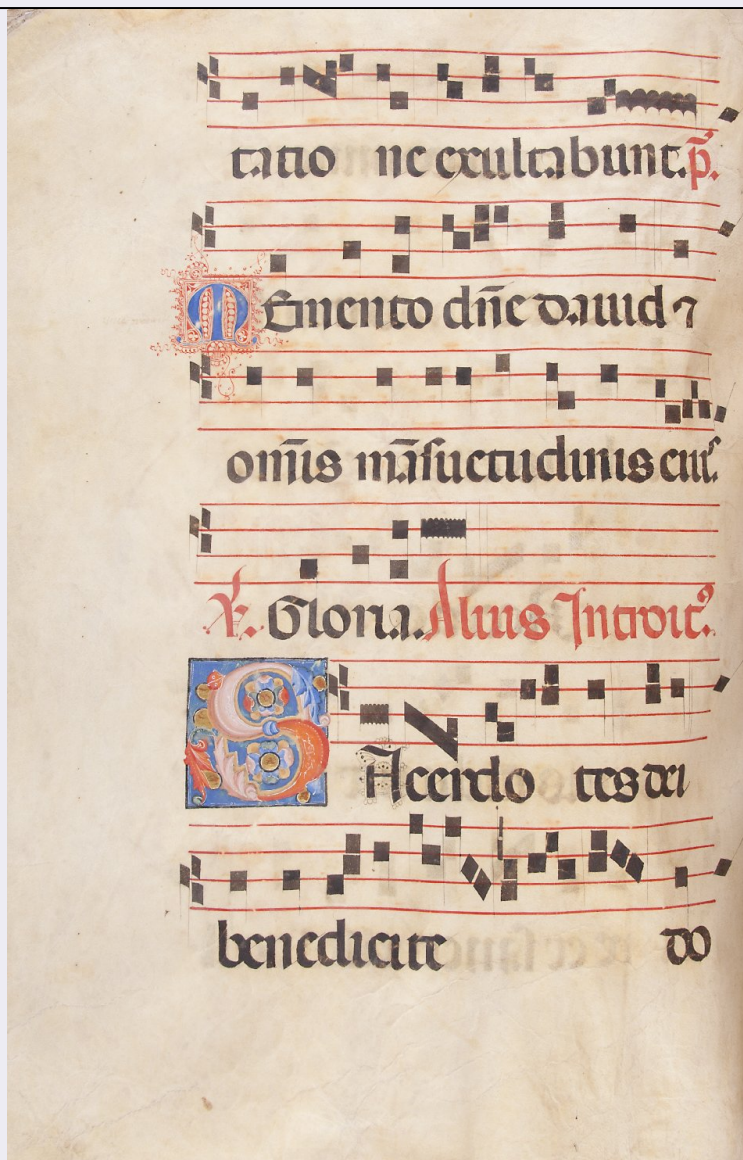 tatio ne exultabunt. p̄.
MEmento dn̄e dauid ⁊
om̄is māsuetudinis eius.
V. Gloria. Alius Introit᷒.
SAcerdo tes dei
benedicite do